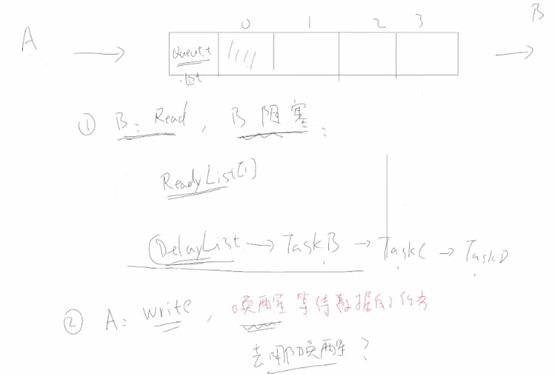 0 1 2 3
A B
Queue_t
① B: Read, B 阻塞:
ReadyList[1]
DelayList → TaskB → TaskC → TaskD
② A: write, 唤醒等待数据的任务
去哪唤醒?